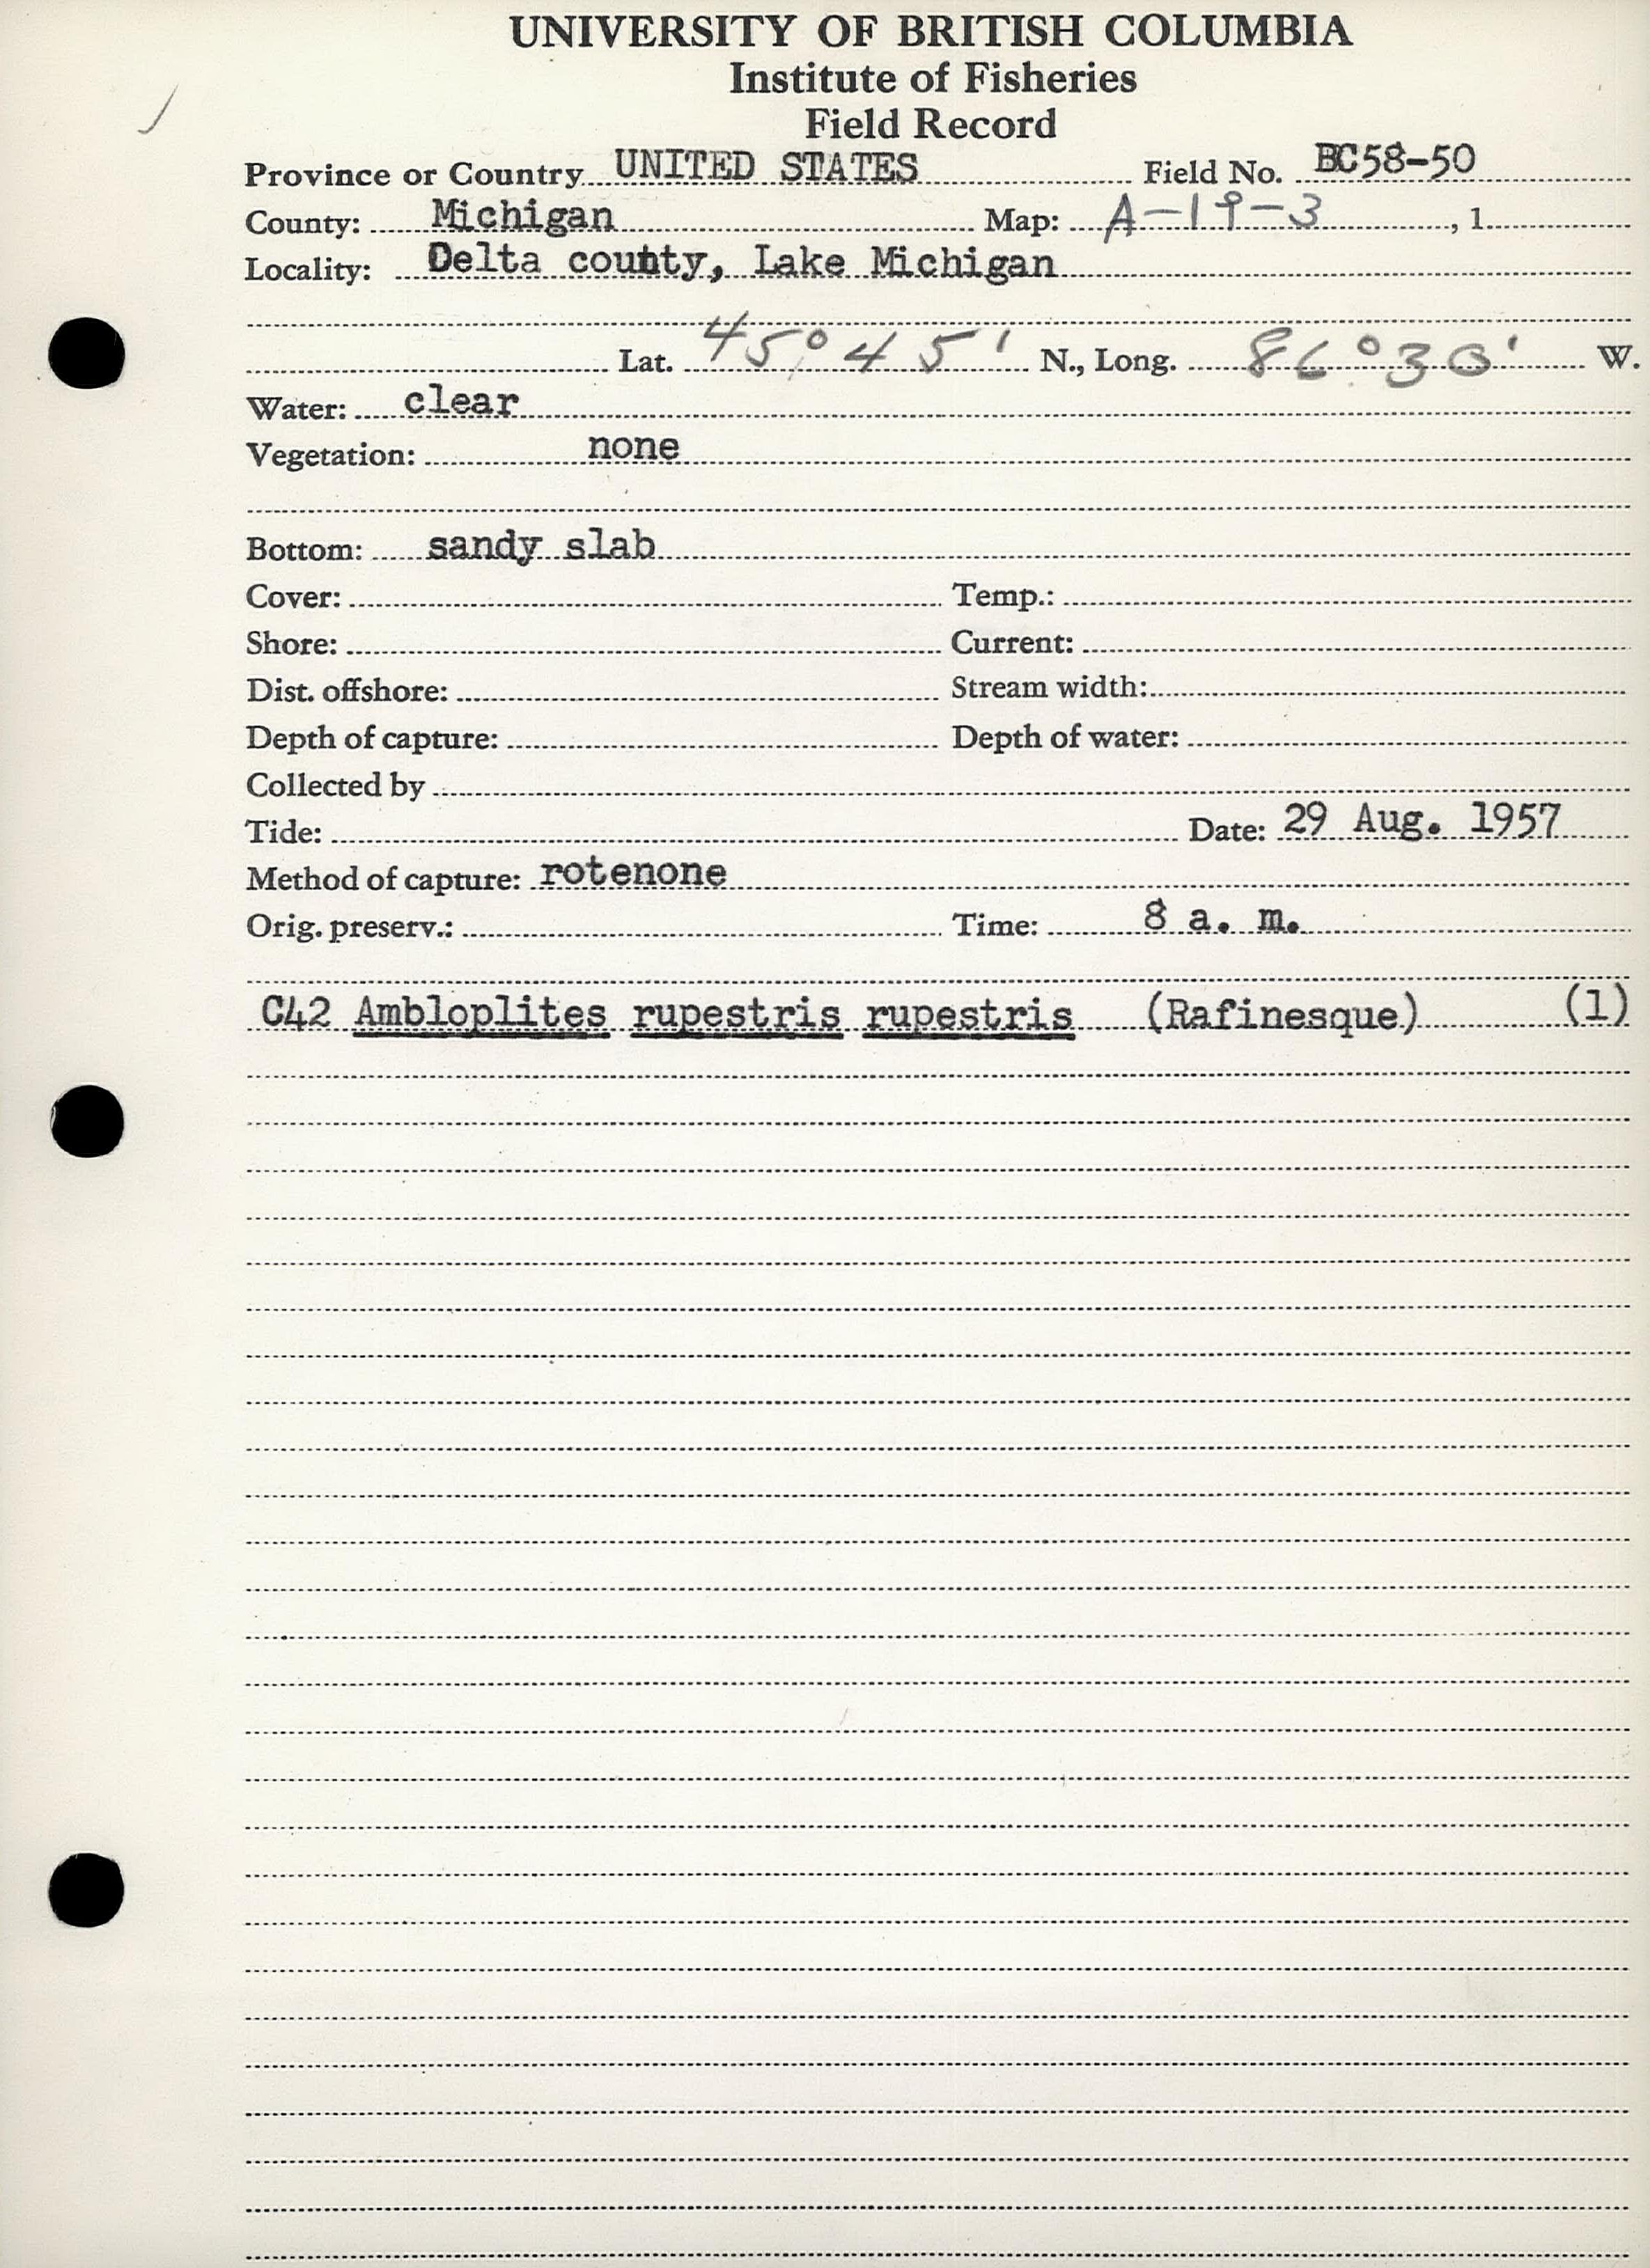 UNIVERSITY OF BRITISH COLUMBIA
Institute of Fisheries
Field Record
Province or Country UNITED STATES Field No. BC58-50
County: Michigan Map: A-19-3, 1
Locality: Delta county, Lake Michigan
Lat. 45° 45' N., Long. 86° 30' W.
Water: clear
Vegetation: none
Bottom: sandy slab
Cover: Temp.:
Shore: Current:
Dist. offshore: Stream width:
Depth of capture: Depth of water:
Collected by
Tide: Date: 29 Aug. 1957
Method of capture: rotenone
Orig. preserv.: Time: 8 a. m.
C42 Ambloplites rupestris rupestris (Rafinesque) (1)